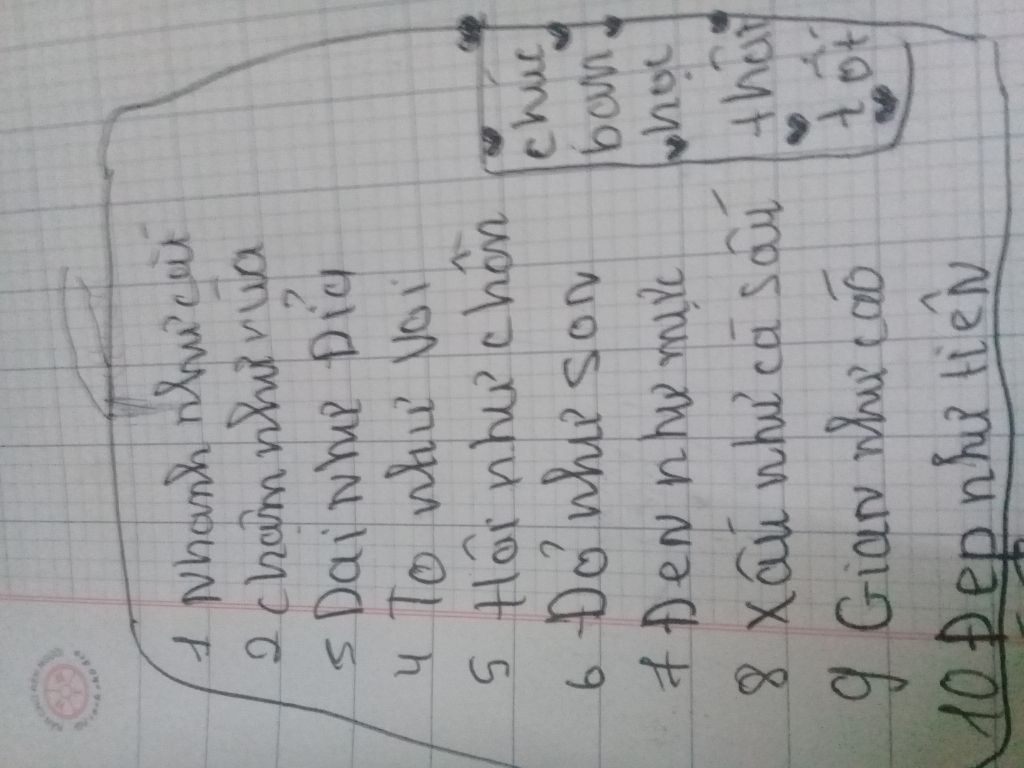 1 Nhanh như cắt
2 chậm như rùa
3 Dai như Đỉa
4 To như Voi
5 Hôi như chồn
6 Đỏ như son
7 Đen như mực
8 Xấu như cá sấu
9 Gian như cáo
10 Đẹp như tiên
chúc
bạn
học
thật
tốt